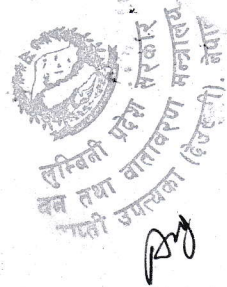 लुम्बिनी प्रदेश सरकार
वन तथा वातावरण मन्त्रालय
उपत्यका (देउखुरी),